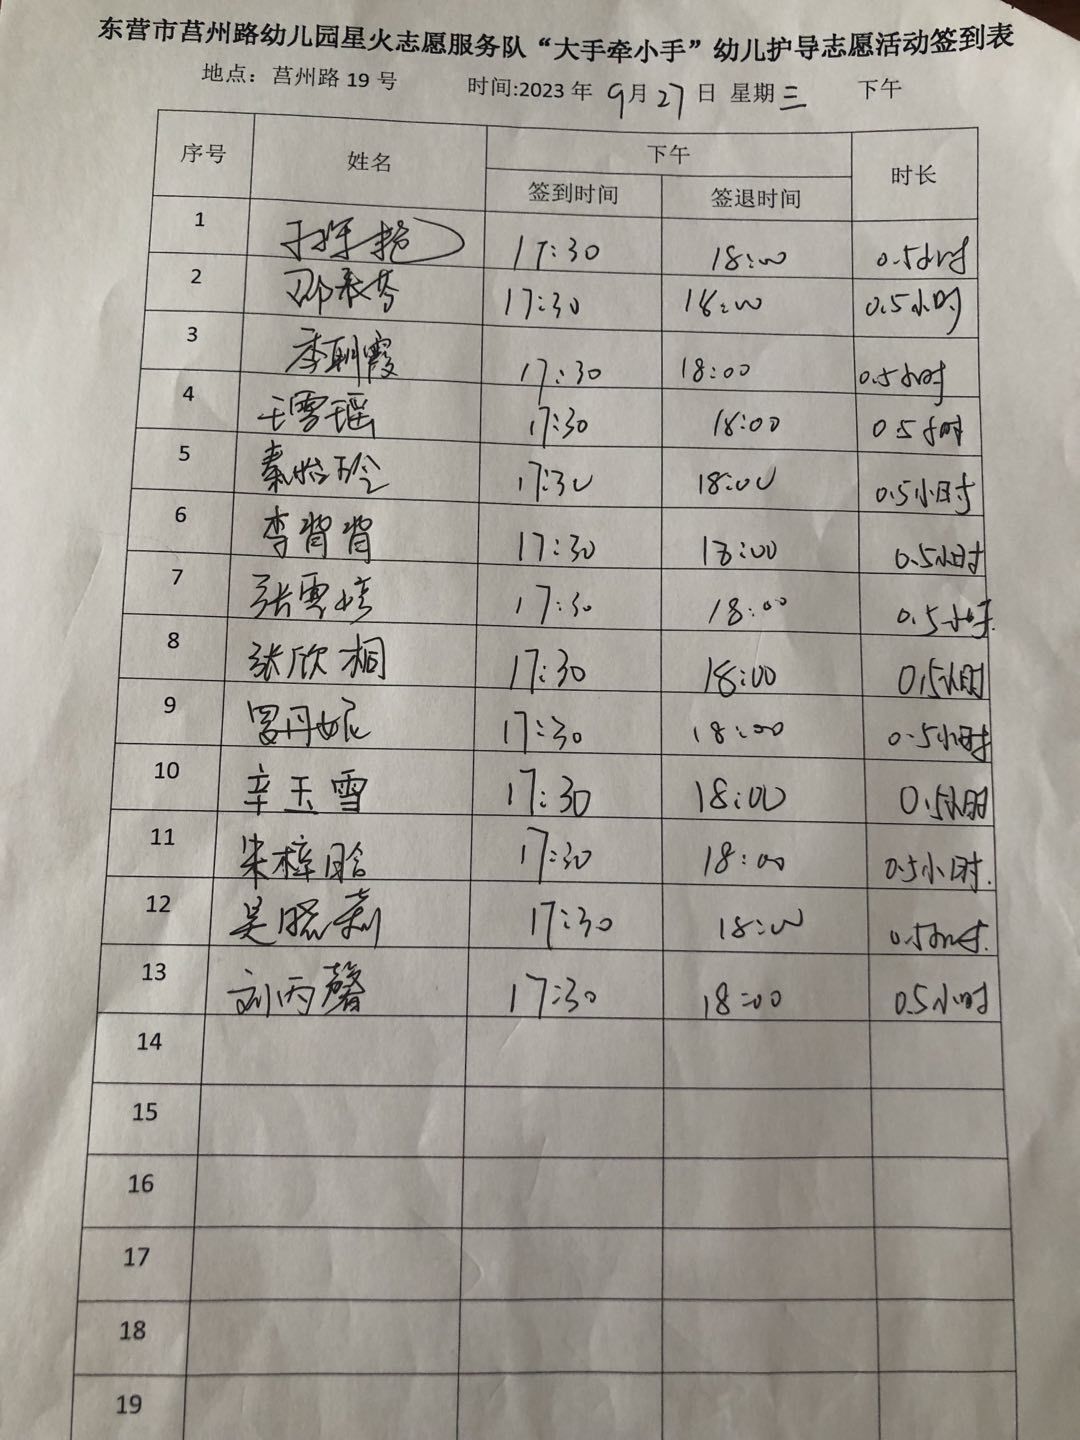 东营市莒州路幼儿园星火志愿服务队“大手牵小手”幼儿护导志愿活动签到表
地点：莒州路 19 号 时间:2023 年 9月 27 日 星期三 下午
序号 姓名 下午 时长
签到时间 签退时间
1 17:30 18:00 0.5小时
2 17:30 18:00 0.5小时
3 李朝霞 17:30 18:00 0.5小时
4 王雪瑶 17:30 18:00 0.5小时
5 秦怡玲 17:30 18:00 0.5小时
6 李背背 17:30 18:00 0.5小时
7 张雪婷 17:30 18:00 0.5小时.
8 张欣桐 17:30 18:00 0.5小时
9 罗丹妮 17:30 18:00 0.5小时
10 辛玉雪 17:30 18:00 0.5小时
11 朱梓晗 17:30 18:00 0.5小时.
12 吴晓莉 17:30 18:00 0.5小时.
13 刘丙馨 17:30 18:00 0.5小时
14
15
16
17
18
19